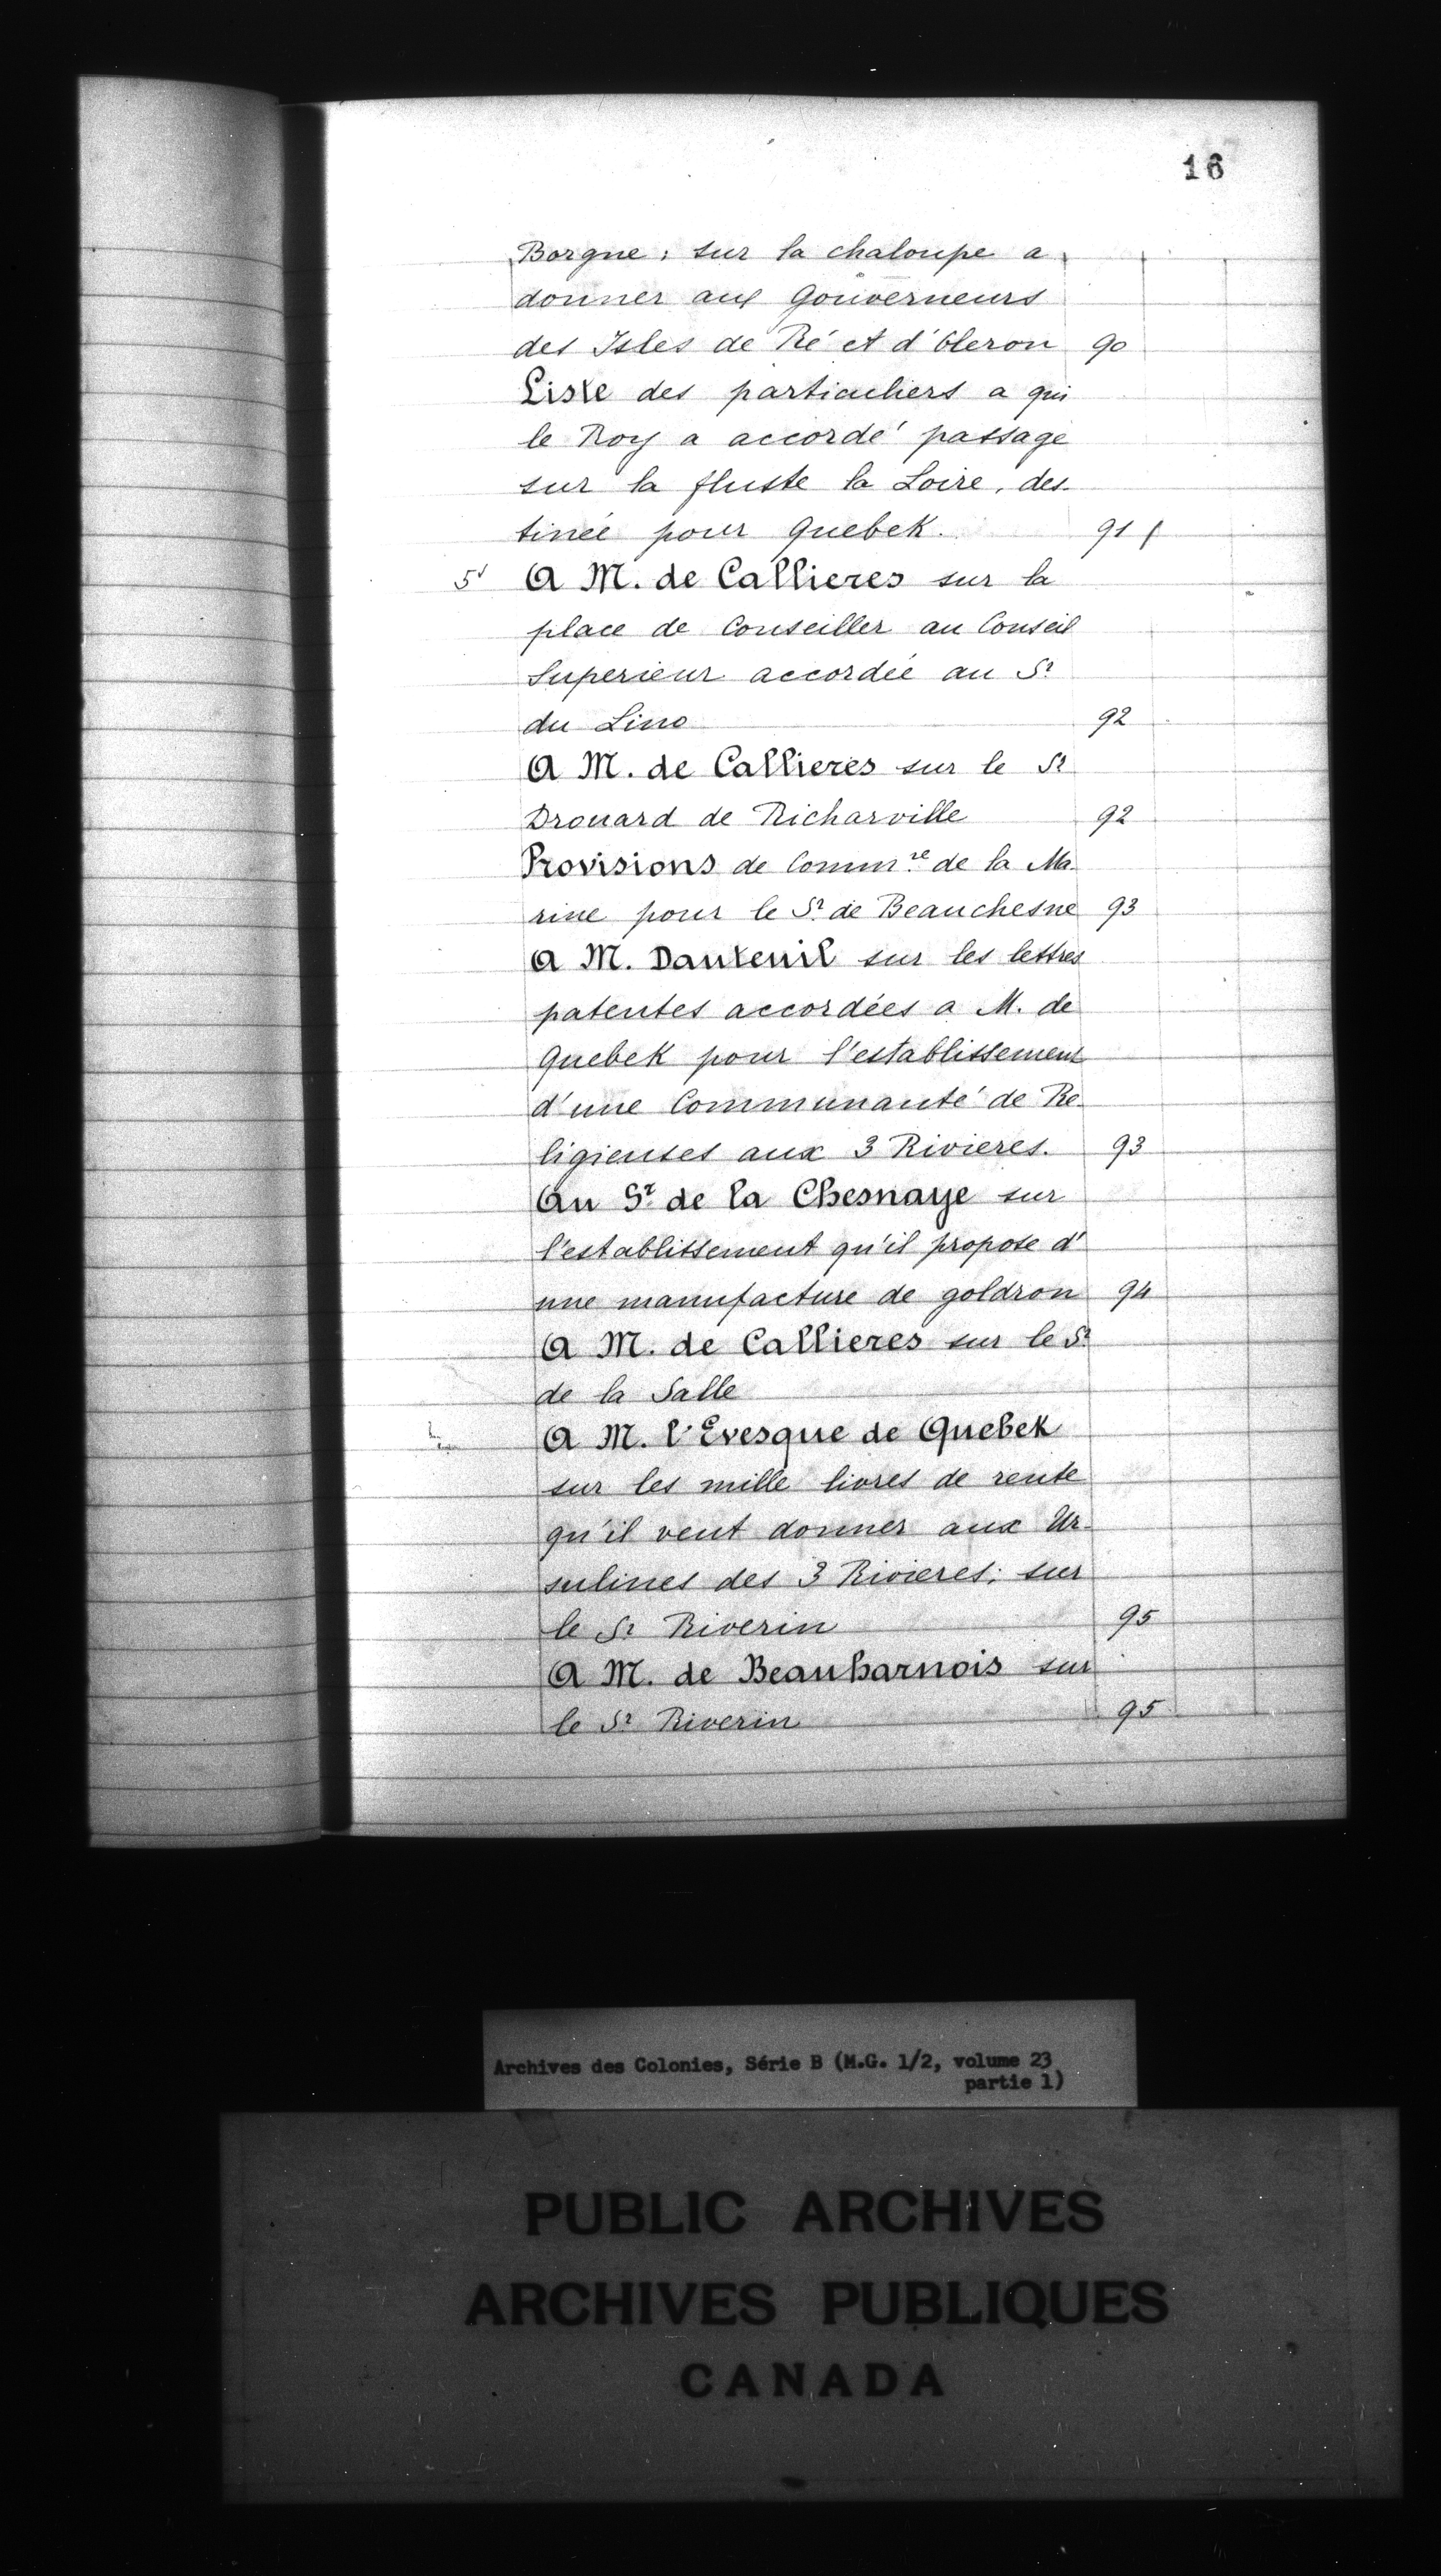 16
Borgne : sur la chaloupe a
donner aux Gouverneurs
des Isles de Ré et d'Oleron 90
Liste des particuliers a qui
le Roy a accordé passage
sur la fluste la Loire, des-
tinée pour Quebek. 91
5 A M. de Callieres sur la
place de Conseiller au Conseil
Superieur accordée au Sr
du Lino 92
A M. de Callieres sur le Sr
Drouard de Richarville 92
Provisions de Commre de la Ma-
rine pour le Sr de Beauchesne 93
A M. Dauteuil sur les lettres
patentes accordées a M. de
Quebek pour l'establissement
d'une Communauté de Re-
ligieuses aux 3 Rivieres. 93
Au Sr de la Chesnaye sur
l'establissement qu'il propose d'
une manufacture de goldron 94
A M. de Callieres sur le Sr
de la Salle
A M. l'Evesque de Quebek
sur les mille livres de rente
qu'il veut donner aux Ur-
sulines des 3 Rivieres; sur
le Sr Riverin 95
A M. de Beauharnois sur
le Sr Riverin 95
Archives des Colonies, Série B (M.G. 1/2, volume 23
partie 1)
PUBLIC ARCHIVES
ARCHIVES PUBLIQUES
CANADA